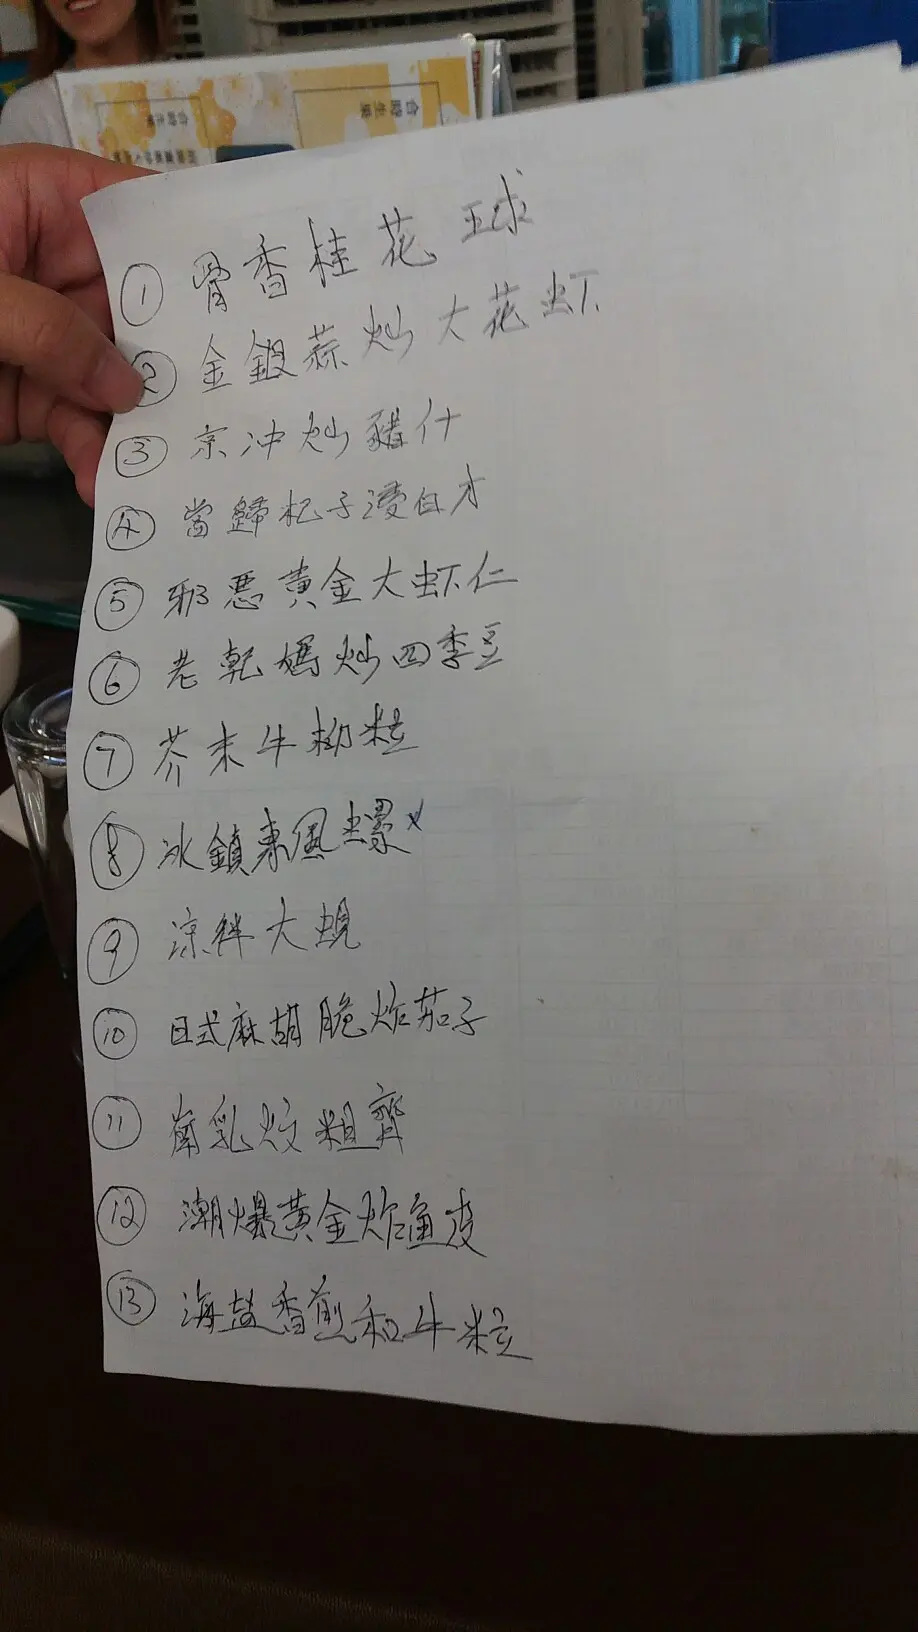 合時生菓
合時生菓
① 骨香桂花球
② 金銀蒜灼大花虾
③ 京冲灼豬什
④ 當歸杞子浸白才
⑤ 邪惡黄金大虾仁
⑥ 老乾媽灼四季豆
⑦ 芥末牛柳粒
⑧ 冰鎮東風螺 x
⑨ 涼拌大蜆
⑩ 日式麻胡脆炸茄子
⑪ 南乳炆粗齋
⑫ 潮爆黄金炸魚皮
⑬ 海盐香煎和牛粒